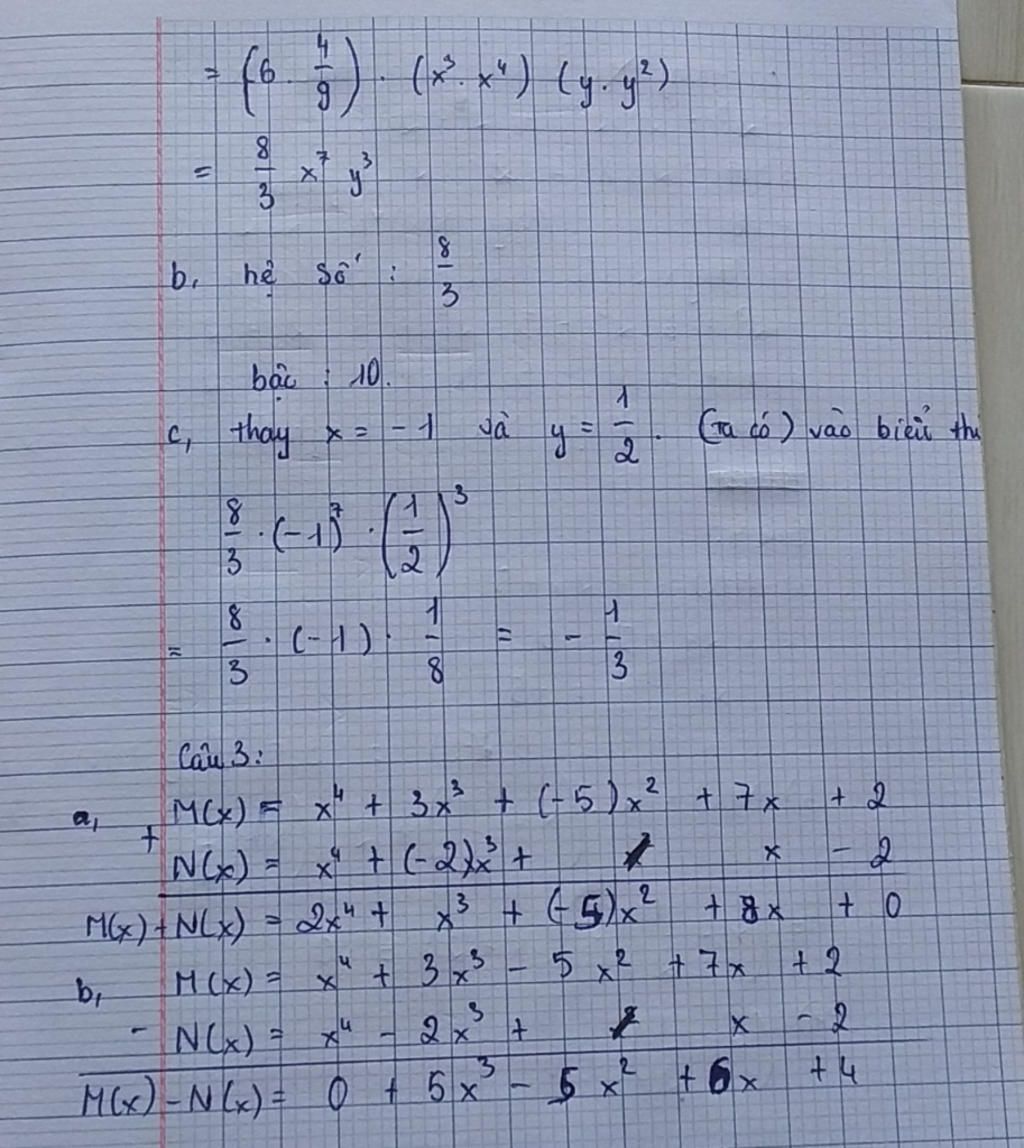 = (6 . 4/9) . (x³ . x⁴) (y . y²)
= 8/3 x⁷ y³
b, hệ số : 8/3
bậc : 10.
c, thay x = -1 và y = 1/2 . (ta có) vào biểu th
8/3 . (-1)⁷ . (1/2)³
= 8/3 . (-1) . 1/8 = - 1/3
Câu 3:
a, M(x) = x⁴ + 3x³ + (-5)x² + 7x + 2
+ N(x) = x⁴ + (-2)x³ + x - 2
M(x) + N(x) = 2x⁴ + x³ + (-5)x² + 8x + 0
b, M(x) = x⁴ + 3x³ - 5x² + 7x + 2
- N(x) = x⁴ - 2x³ + x - 2
M(x) - N(x) = 0 + 5x³ - 5x² + 6x + 4